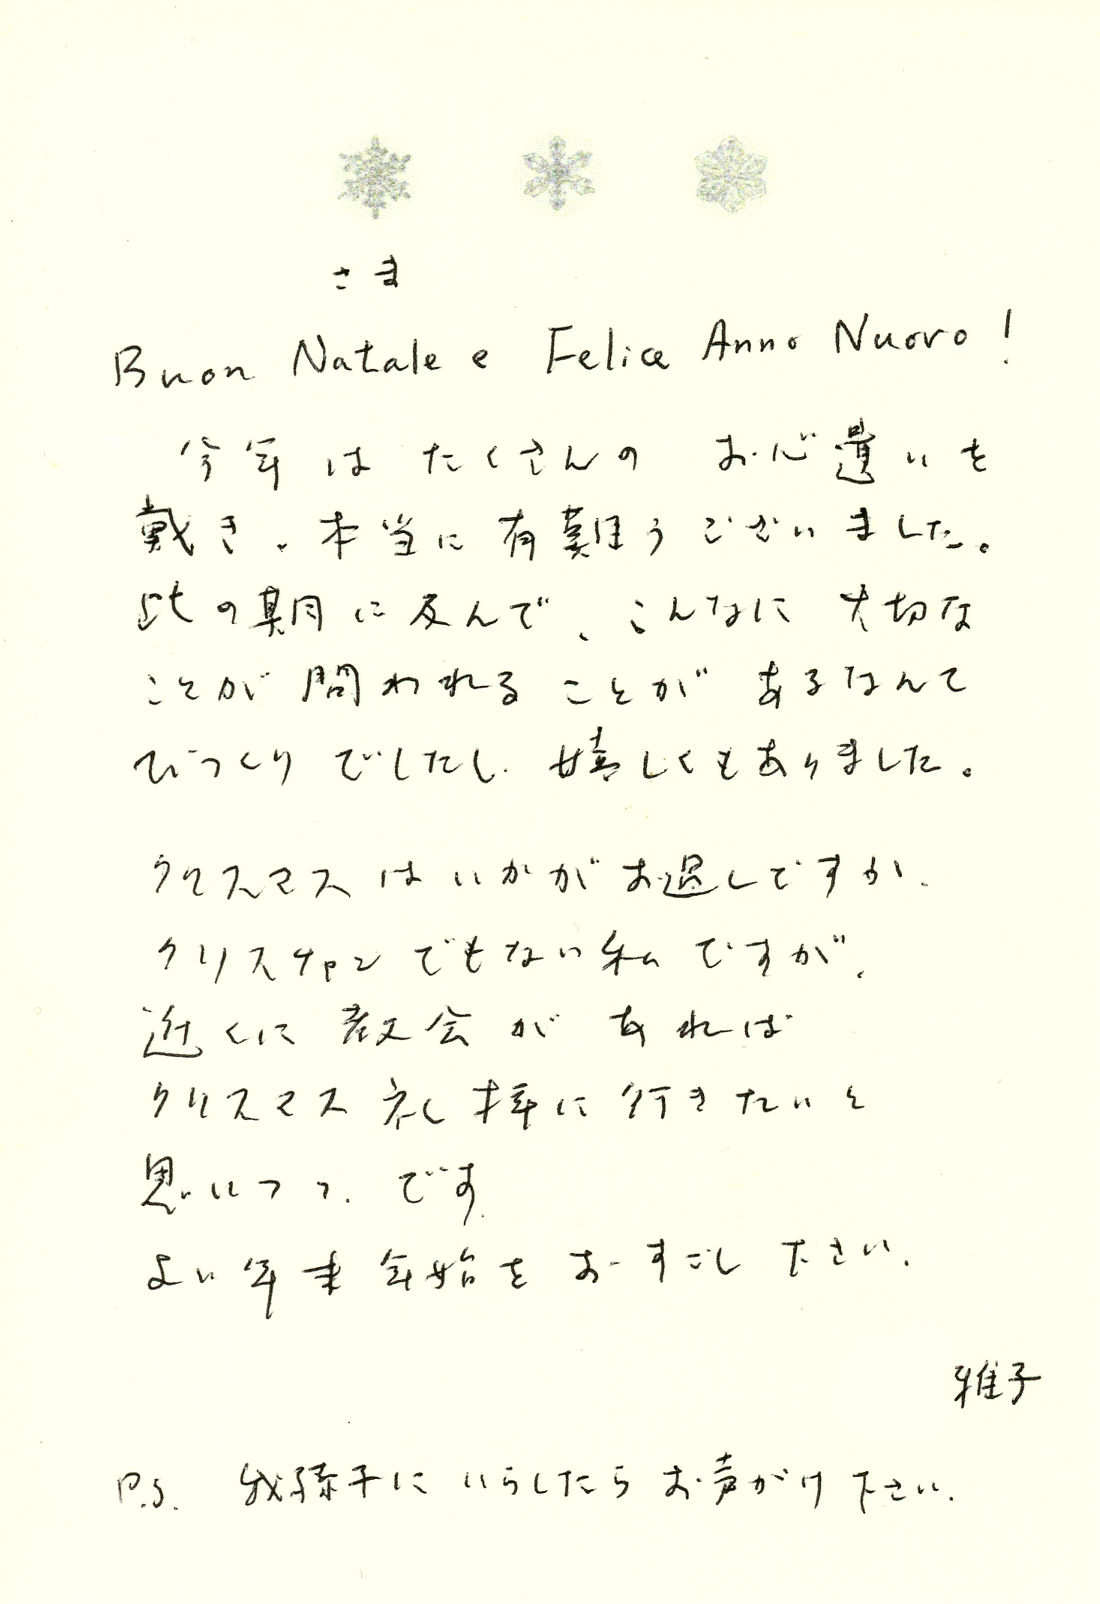 さま
Buon Natale e Felice Anno Nuovo!
今年はたくさんのお心遣いを
戴き、本当に有難うございました。
此の期に及んで、こんなに大切な
ことが問われることがあるなんて
びっくりでしたし、嬉しくもありました。
クリスマスはいかがお過しですか、
クリスチャンでもない私ですが、
近くに教会があれば
クリスマス礼拝に行きたいと
思いつつ、です
よい年末年始をおすごし下さい、
雅子
P.S. 我孫子にいらしたらお声がけ下さい、